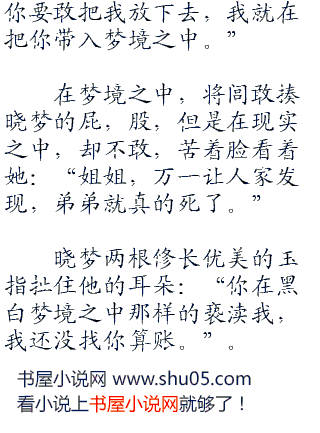 你要敢把我放下去，我就在
把你带入梦境之中。”
在梦境之中，将闾敢揍
晓梦的屁，股，但是在现实
之中，却不敢，苦着脸看着
她：“姐姐，万一让人家发
现，弟弟就真的死了。”
晓梦两根修长优美的玉
指扯住他的耳朵：“你在黑
白梦境之中那样的亵渎我，
我还没找你算账。”。
书屋小说网 www.shu05.com
看小说上书屋小说网就够了！